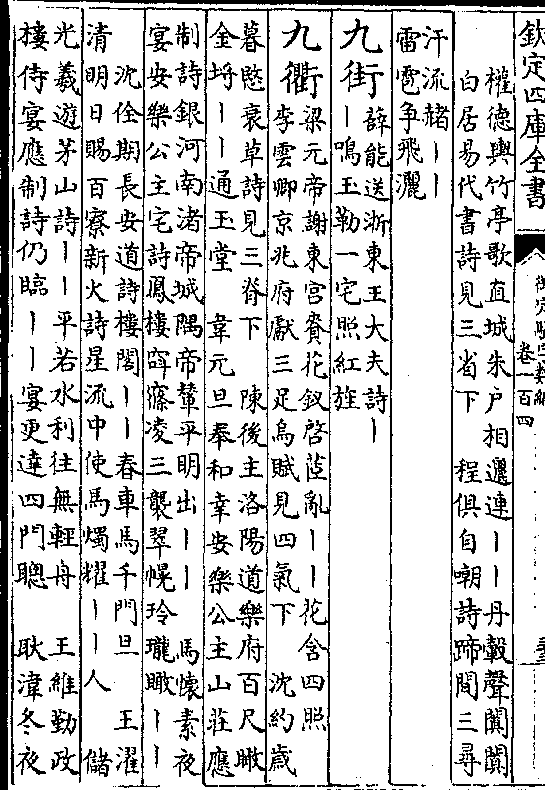 欽定四庫全書
御定駢字類編
卷一百四
權德輿竹亭歌直城朱户相邐連丨丨丹轂聲闐闐
白居易代書詩見三省下　程俱自嘲詩蹄間三尋
汗流赭丨丨
雷雹争飛灑
九街
薛能送浙東王大夫詩丨
丨鳴玉勒一宅照紅旌
九衢
梁元帝謝東宮賚花釵啓茝亂丨丨花含四照
李雲卿京兆府獻三足烏賦見四氣下　沈約歲
暮愍衰草詩見三脊下　陳後主洛陽道樂府百尺瞰
金埒丨丨通玉堂　韋元旦奉和幸安樂公主山莊應
制詩銀河南渚帝城隅帝輦平明出丨丨　馬懷素夜
宴安樂公主宅詩鳳樓窈窱凌三襲翠幌玲瓏瞰丨丨
沈佺期長安道詩樓閣丨丨春車馬千門旦　王濯
清明日賜百寮新火詩星流中使馬燭耀丨丨人　儲
光羲遊茅山詩丨丨平若水利往無輕舟　王維勤政
樓侍宴應制詩仍臨丨丨宴更達四門聰　耿湋冬夜